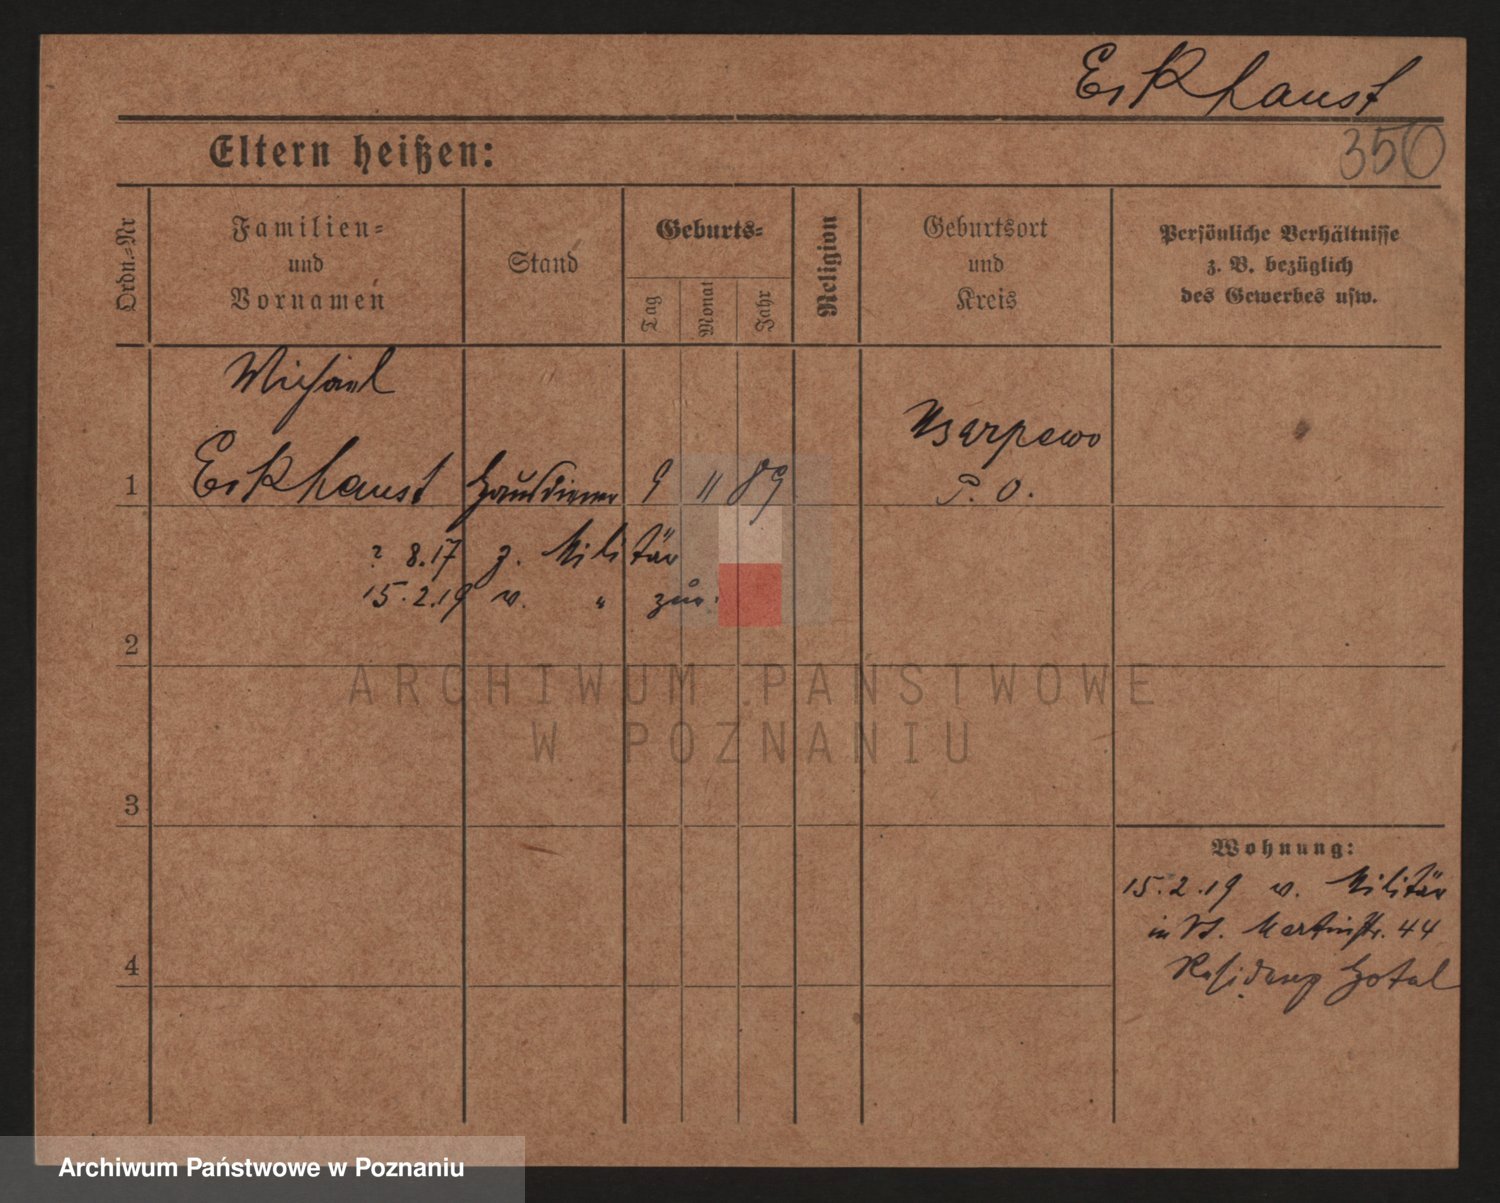 Erkhaust
350
Eltern heißen:
Ordn.=Nr
Familien=
und
Vornamen
Stand
Geburts=
Tag
Monat
Jahr
Religion
Geburtsort
und
Kreis
Persönliche Verhältnisse
z. B. bezüglich
des Gewerbes usw.
Michael
1 Erkhaust Hausdiener 9 11 89
P. O.
? 8.17 z. Militär
15.2.19 v. " zur.
2
3
4
Wohnung:
15.2.19 v. Militär
in St. Martinstr. 44
Residenz Hotel
ARCHIWUM PAŃSTWOWE
W POZNANIU
Archiwum Państwowe w Poznaniu